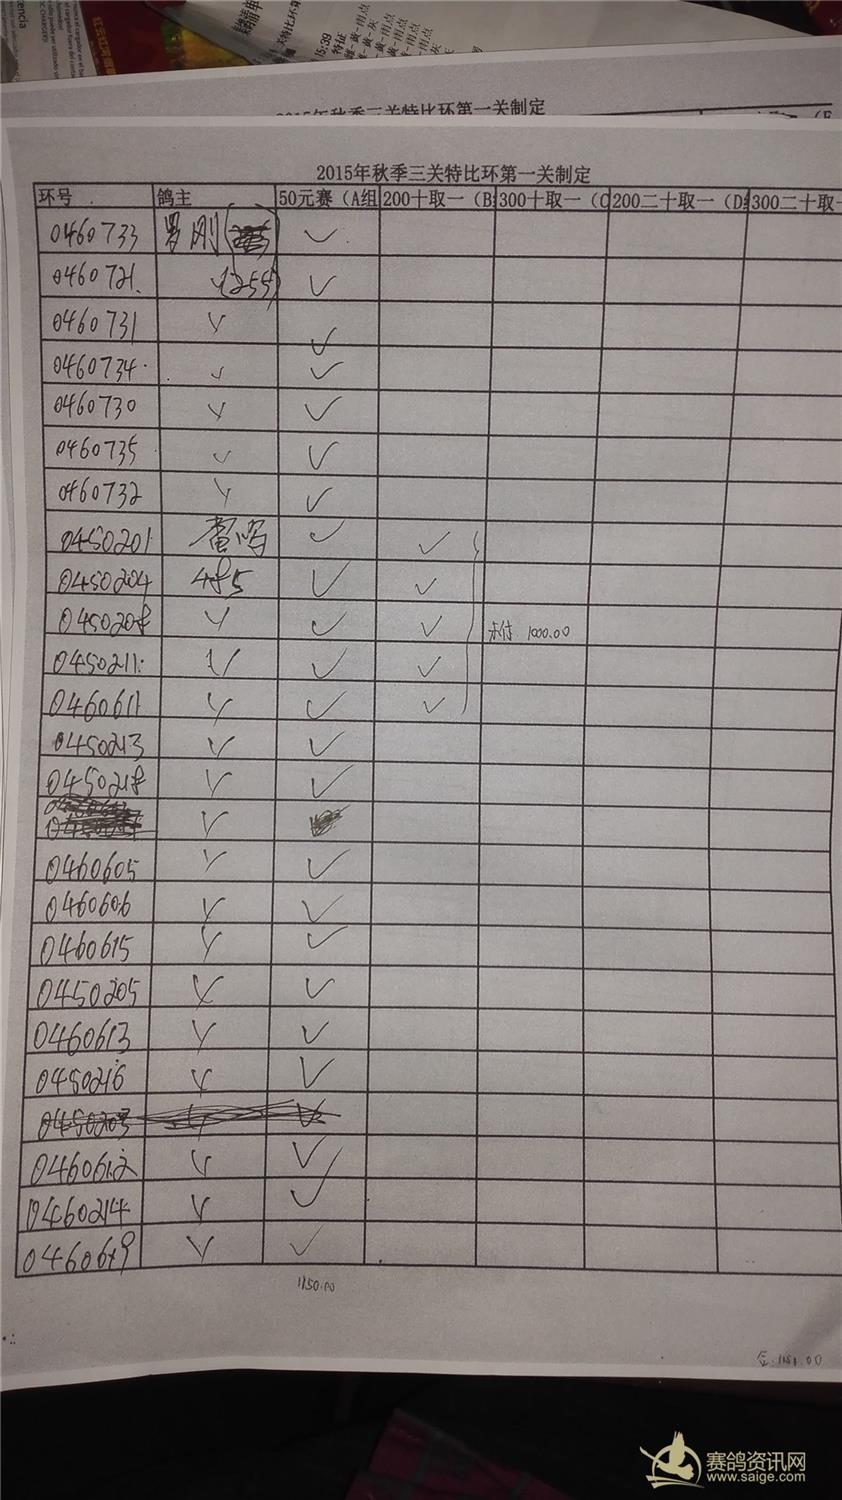 2015年秋季三关特比环第一关制定
2015年秋季三关特比环第一关制定
环号 鸽主 50元赛（A组 200十取一（B 300十取一（C 200二十取一（D组 300二十取一
0460733 罗刚 ✓
0460721 (255) ✓
0460731 ✓
0460734 ✓ ✓
0460730 ✓
0460735 ✓ ✓
0460732 ✓
0450201 ✓ ✓
0450204 485 ✓ ✓
0450208 ✓ ✓ 未付 1000.00
0450211 ✓ ✓ ✓
0460611 ✓ ✓
0450213 ✓
0450218 ✓
0460605 ✓
0460606 ✓
0460615 ✓
0450205 ✓
0460613 ✓
0450216 ✓
0460612 ✓
0460214 ✓
✓
1150.00
赛鸽资讯网
www.saige.com